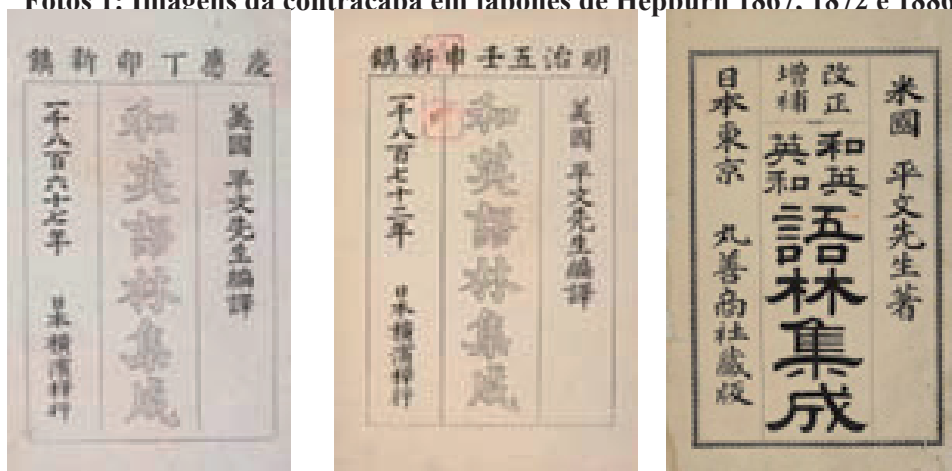 Fotos 1: Imagens da contracapa em Japonês de Hepburn 1867, 1872 e 1886
慶應丁卯新鐫
美國 平文先生編譯
和英語林集成
一千八百六十七年 日本橫濱梓行
明治五壬申新鐫
美國 平文先生編譯
和英語林集成
一千八百七十二年 日本橫濱梓行
米國 平文先生著
改正
增補
和英
英和
語林集成
日本東京 丸善商社蔵版